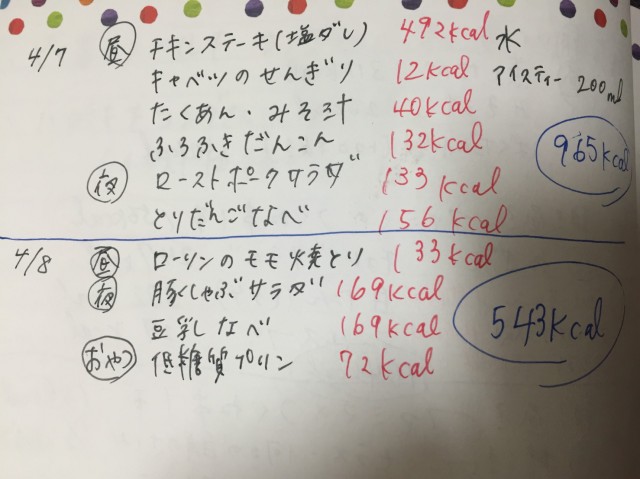 4/7 昼 チキンステーキ(塩ダレ) 492kcal 水
キャベツのせんぎり 12kcal アイスティー 200ml
たくあん・みそ汁 40kcal
ふろふきだんこん 132kcal 965kcal
夜 ローストポークサラダ 133kcal
とりだんごなべ 156kcal
4/8 昼 ローソンのモモ焼とり 133kcal
夜 豚しゃぶサラダ 169kcal
豆乳しなべ 169kcal 543kcal
おやつ 低糖質プリン 72kcal